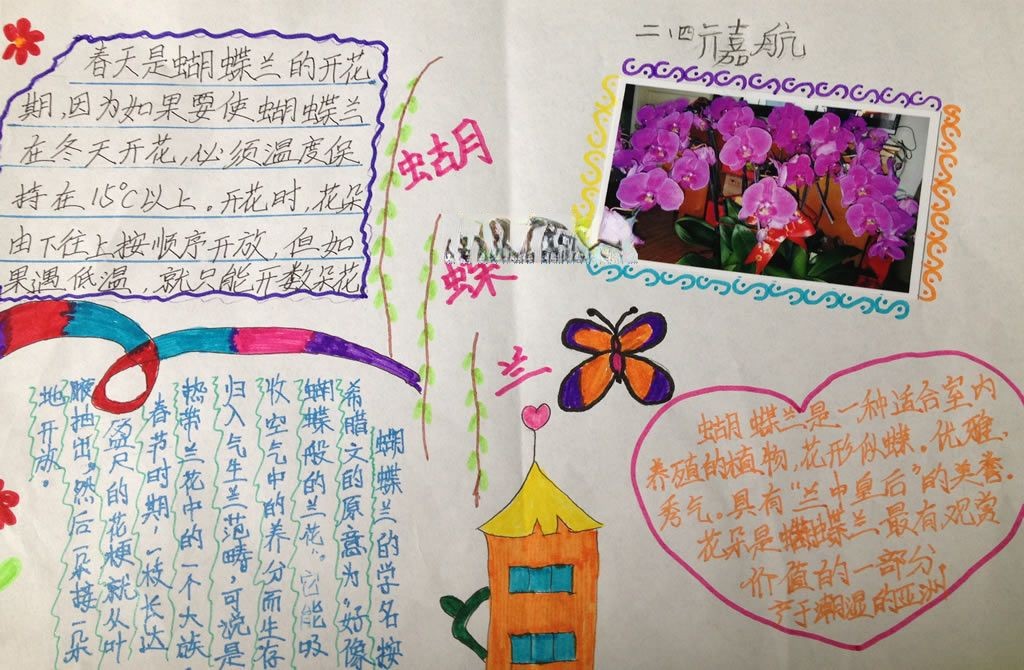 二四亓嘉航
蝴
蝶
兰
春天是蝴蝶兰的开花
期,因为如果要使蝴蝶兰
在冬天开花,必须温度保
持在15℃以上。开花时,花朵
由下往上按顺序开放,但如
果遇低温,就只能开数朵花
蝴蝶兰的学名按
希腊文的原意为“好像
蝴蝶般的兰花”。它能吸
收空气中的养分而生存
归入气生兰范畴,可说是
热带兰花中的一个大族
春节时期,一枝长达
盈尺的花梗就从叶
腋抽出,然后一朵接一朵
地开放。
蝴蝶兰是一种适合室内
养殖的植物,花形似蝶。优雅、
秀气。具有“兰中皇后”的美誉.
花朵是蝴蝶兰最有观赏
价值的一部分,
产于潮湿的亚洲